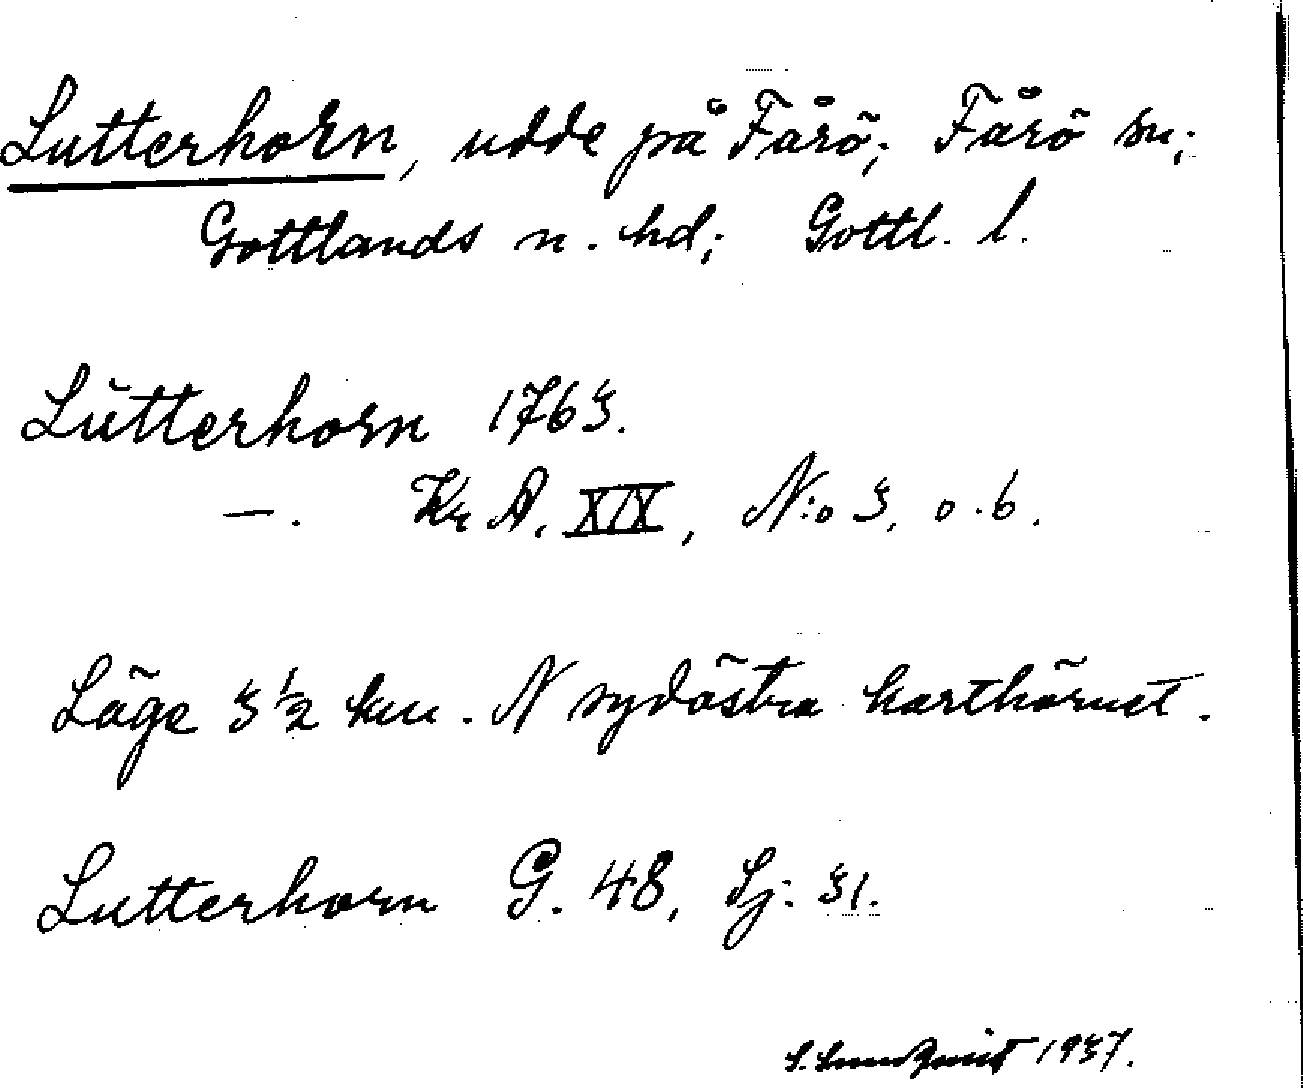 Lutterhorn, udde på Fårö; Fårö sn;
Gottlands n. hd; Gottl. l.
Lŭtterhorn 1763.
—. Kr A. XIX, N:o 3, o. 6.
Läge 3 1/2 km. N sydöstra karthörnet.
Lutterhorn G. 48, Sj: 31.
S. Lundquist 1937.